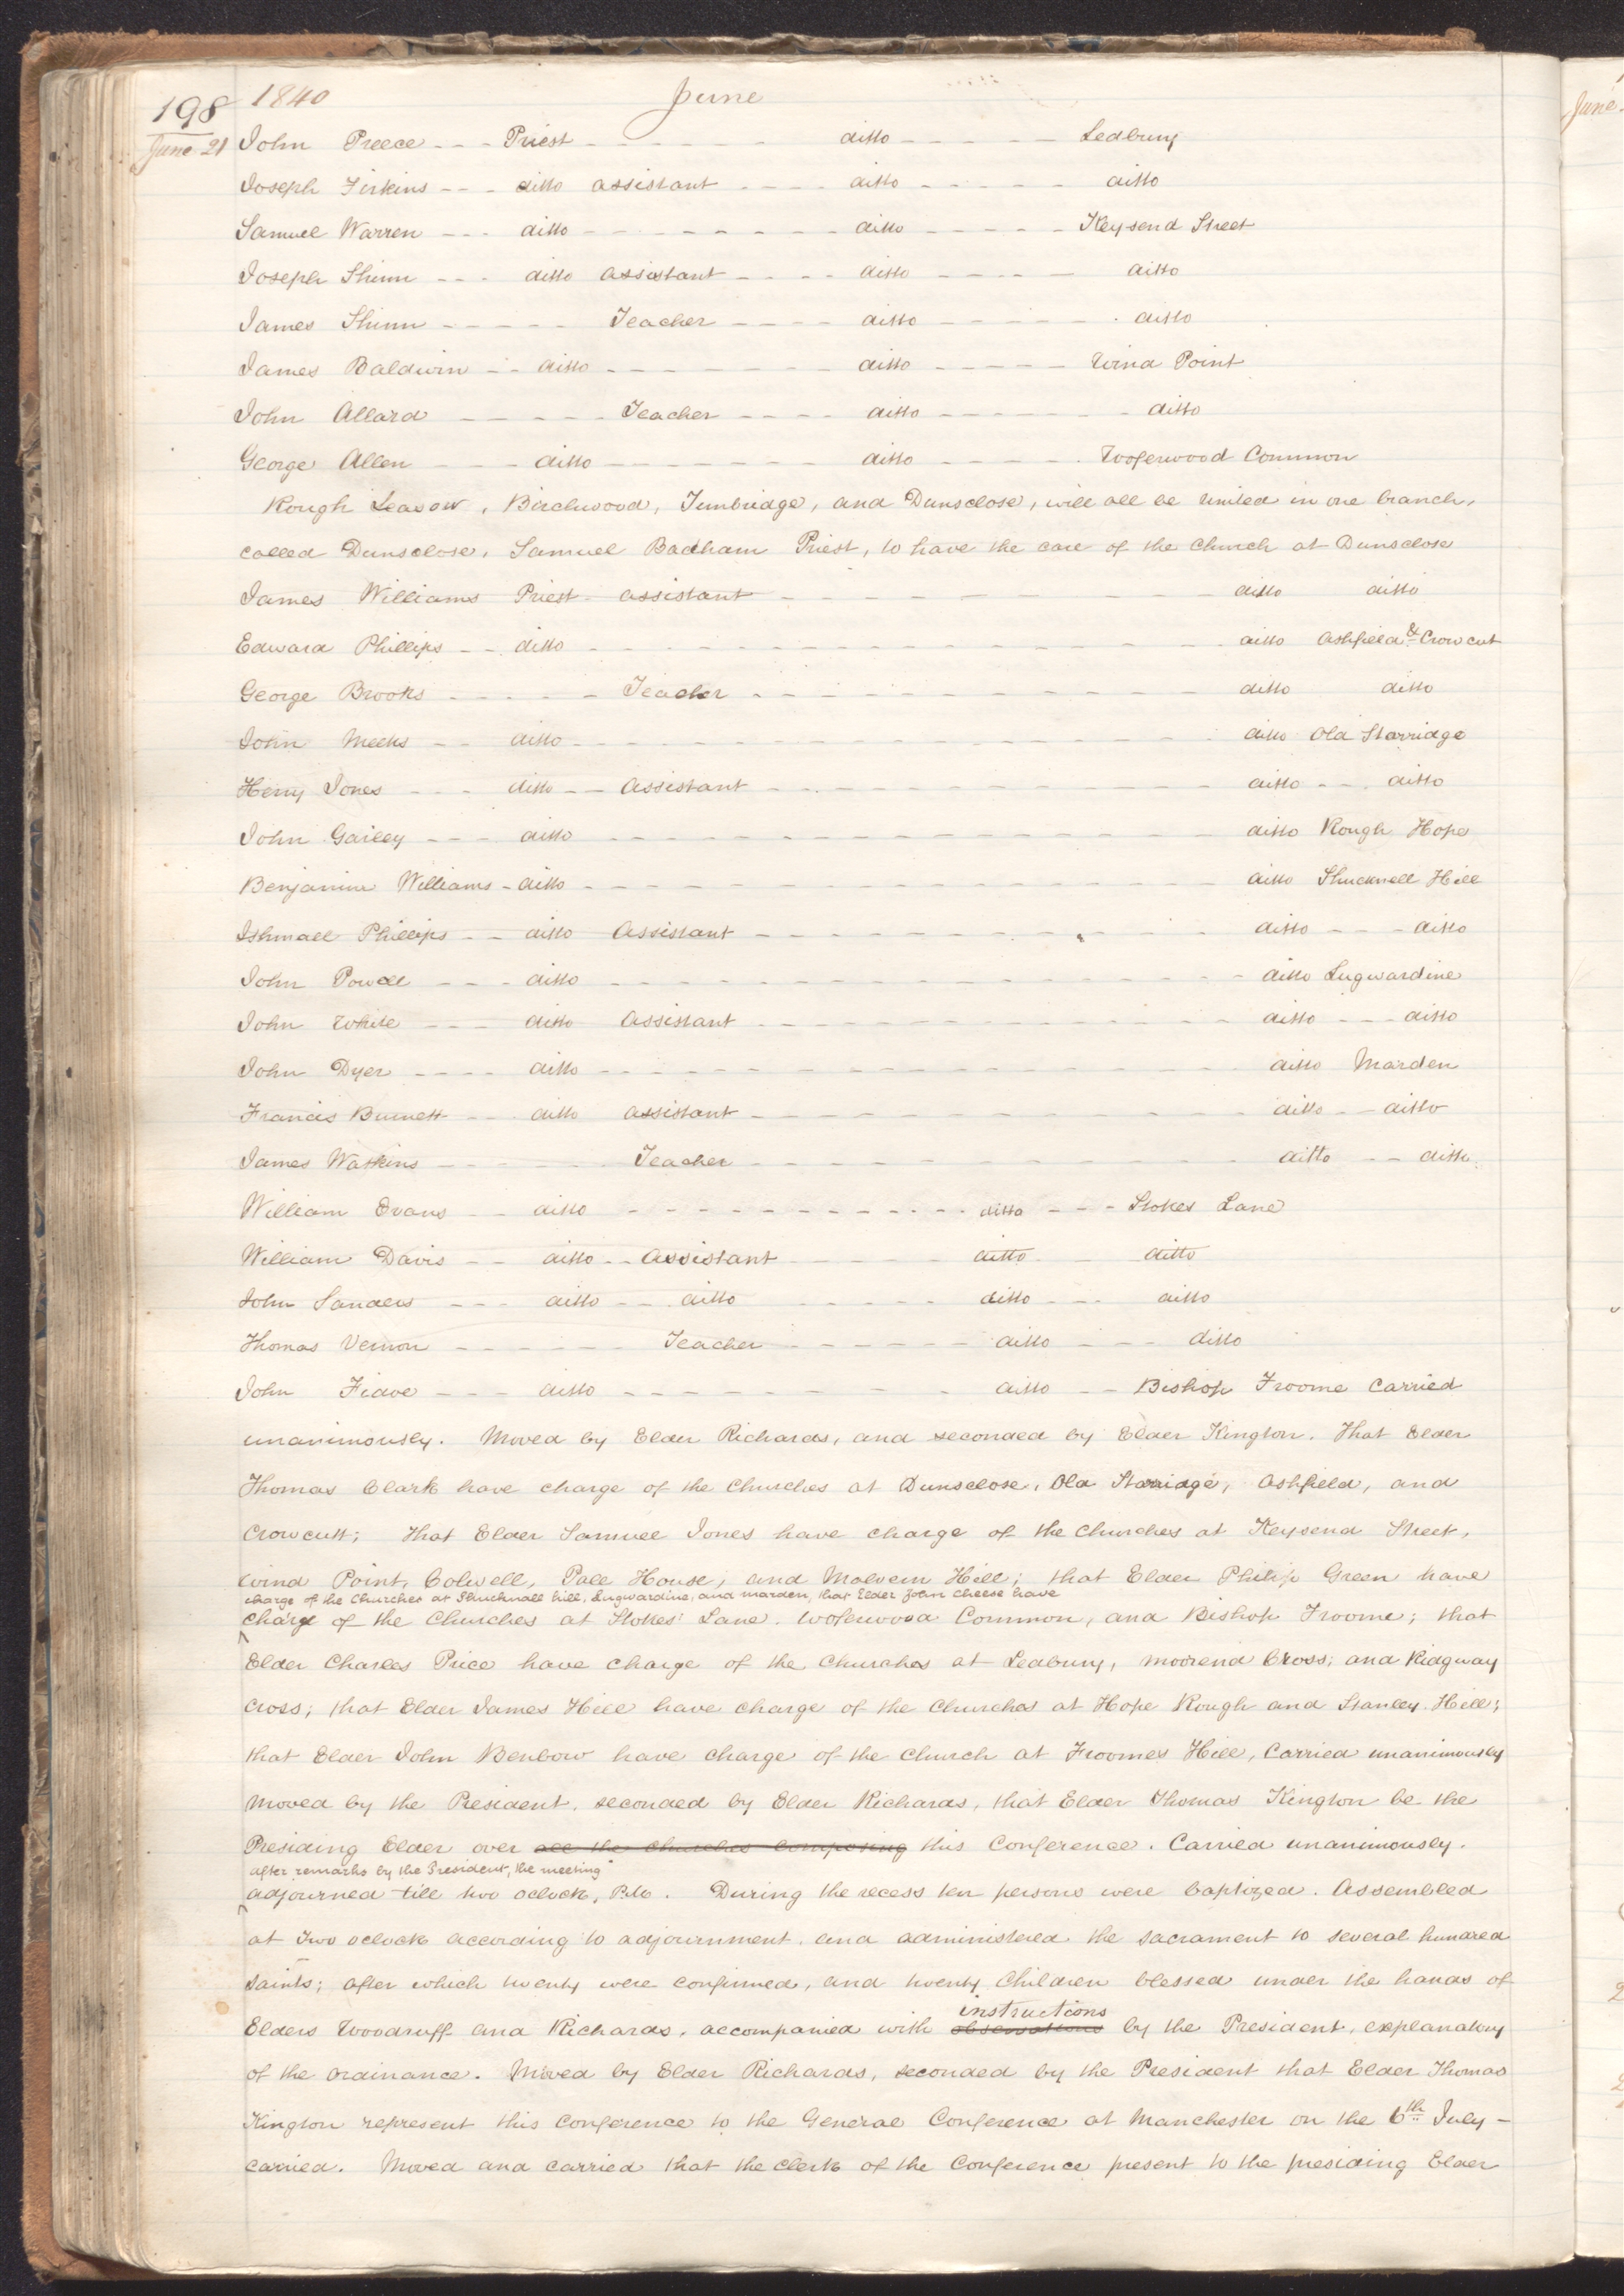 198 1840 June
June 21 John Preece - - - Priest - - - - - - - ditto - - - - - Ledbury
Joseph Firkins - - - ditto assistant - - - - ditto - - - - - ditto
Samuel Warren - - - ditto - - - - - - - - ditto - - - - - Keysend Street
Joseph Shinn - - - ditto assistant - - - - ditto - - - - - ditto
James Shinn - - - - - Teacher - - - - ditto - - - - - ditto
James Baldwin - - ditto - - - - - - - ditto - - - - - Wind Point
John Allard - - - - - Teacher - - - - ditto - - - - - - ditto
George Allen - - - ditto - - - - - - - ditto - - - - - Woferwood Common
Rough Leasow, Birchwood, Tunbridge, and Dunsclose, will all be united in one branch,
called Dunsclose. Samuel Badham Priest, to have the care of the Church at Dunsclose
James Williams Priest assistant - - - - - - - - - ditto ditto
Edward Phillips - - ditto - - - - - - - - - - - - - - ditto Ashfield & Crowcut
George Brooks - - - - - Teacher - - - - - - - - - - - ditto ditto
John Meeks - - ditto - - - - - - - - - - - - - - - ditto Old Starridge
Henry Jones - - - ditto - - Assistant - - - - - - - - - - - ditto - - - ditto
John Gailey - - - ditto - - - - - - - - - - - - - - ditto Rough Hope
Benjamin Williams - ditto - - - - - - - - - - - - - - - ditto Shucknell Hill
Ishmael Phillips - - ditto Assistant - - - - - - - - - - - ditto - - - ditto
John Powell - - - ditto - - - - - - - - - - - - - - - ditto Lugwardine
John White - - - ditto Assistant - - - - - - - - - - - ditto - - - ditto
John Dyer - - - - ditto - - - - - - - - - - - - - - - ditto Marden
Francis Burnett - - - ditto assistant - - - - - - - - - - - - ditto - - ditto
James Watkins - - - - - - Teacher - - - - - - - - - - - - ditto - - ditto
William Evans - - ditto - - - - - - - - - - - ditto - - - Stokes Lane
William Davis - - ditto - - Assistant - - - - - ditto - - - ditto
John Sanders - - - ditto - - ditto - - - - - - ditto - - - ditto
Thomas Vernon - - - - - - Teacher - - - - - - ditto - - - ditto
John Fidoe - - - ditto - - - - - - - - - ditto - - Bishop Froome Carried
unanimously. Moved by Elder Richards, and seconded by Elder Kington. That Elder
Thomas Clark have charge of the Churches at Dunsclose, Old Starridge, Ashfield, and
Crowcutt; that Elder Samuel Jones have charge of the Churches at Keysend Street,
Wind Point, Colwell, Pale House, and Malvern Hill; that Elder Philip Green have
charge of the Churches at Shucknall hill, Lugwardine, and marden, that Elder John Cheese have
charge of the Churches at Stokes' Lane, Woferwood Common, and Bishop Froome; that
Elder Charles Price have charge of the Churches at Ledbury, Moorend Cross, and Ridgway
Cross; that Elder James Hill have charge of the Churches at Hope Rough and Stanley Hill;
that Elder John Benbow have charge of the Church at Froomes Hill, Carried unanimously
Moved by the President, seconded by Elder Richards, that Elder Thomas Kington be the
Presiding Elder over all the churches composing this Conference. Carried unanimously.
after remarks by the President, the meeting
adjourned till two oclock, P.M. During the recess ten persons were baptized. Assembled
at Two oclock according to adjournment, and administered the sacrament to several hundred
Saints; after which twenty were confirmed, and twenty Children blessed under the hands of
instructions
Elders Woodruff and Richards, accompanied with observations by the President, explanatory
of the ordinance. Moved by Elder Richards, seconded by the President that Elder Thomas
Kington represent this Conference to the General Conference at Manchester on the 6th July -
carried. Moved and carried that the Clerk of the Conference present to the presiding Elder
June